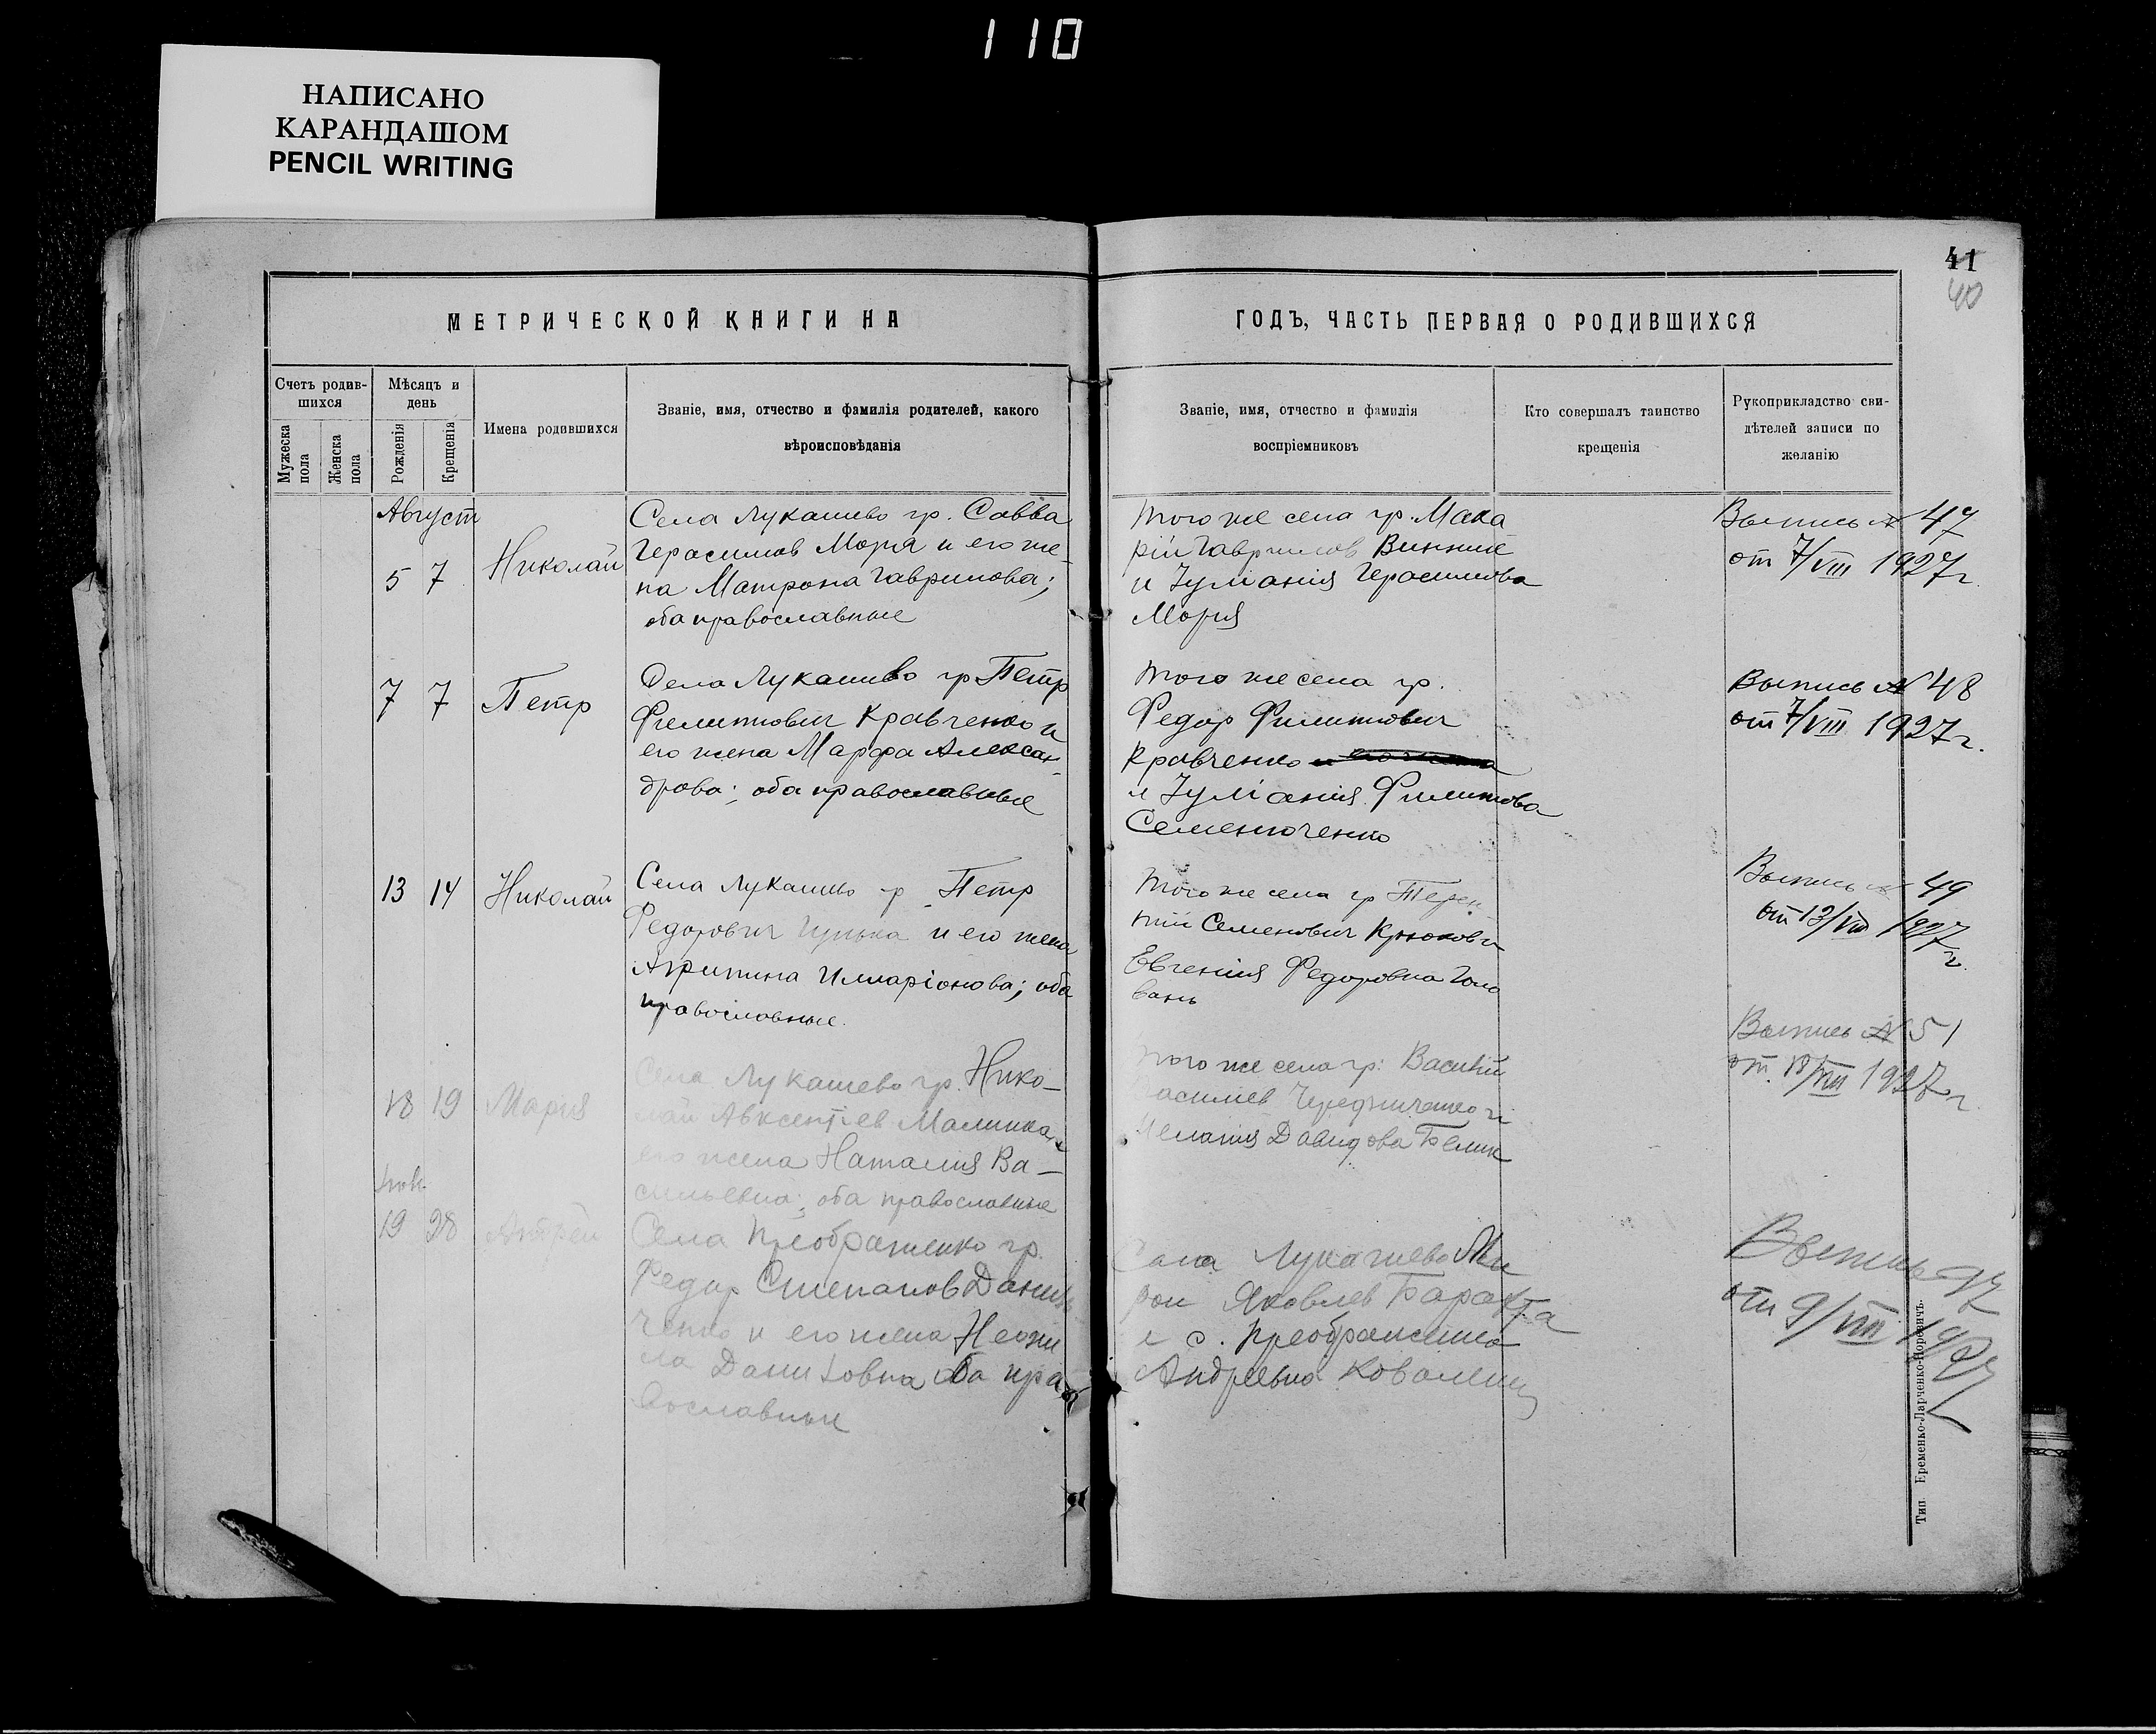 110
НАПИСАНО
КАРАНДАШОМ
PENCIL WRITING
41
40
МЕТРИЧЕСКОЙ КНИГИ НА
ГОДЪ, ЧАСТЬ ПЕРВАЯ О РОДИВШИХСЯ
Счетъ родив-
шихся
Мужеска
пола
Женска
пола
Мѣсяцъ и
день
Рожденія
Крещенія
Имена родившихся
Званіе, имя, отчество и фамилія родителей, какого
вѣроисповѣданія
Званіе, имя, отчество и фамилія
воспріемниковъ
Кто совершалъ таинство
крещенія
Рукоприкладство сви-
дѣтелей записи по
желанію
Август
5 7 Николай
Села Лукашево гр. Савва
Герасимов Моря и его же-
на Матрона Гаврилова;
оба православные
того же села гр. Мака
рій Гаврилов Винник
и Іуліанія Герасимова
Моря
Выпись № 47
от 7/VIII 1927 г.
7 7 Петр
Села Лукашево гр Петр
Филиппович Кравченко и
его жена Марфа Алексан-
дрова; оба православные
того же села гр.
Федор Филиппович
Кравченко и его жена
и Іуліанія Филипова
Семенюченко
Выпись № 48
от 7/VIII 1927 г.
13 14 Николай
Села Лукашево гр Петр
Федорович и его жена
Агрипина Илларіонова; оба
православные.
того же села гр Терен
тій Семенович Крюков и
Евгенія Федоровна Голо
вань
Выпись № 49
от 13/VIII 1927 г.
18 19 Мария
Села Лукашево гр. Нико-
лай Авксентіев Малинка и
его жена Наталия Ва-
сильевна; оба православные
того же села гр: Василій
Василиев Чередниченко и
Меланія Давидова Белик
Выпись № 51
от 18/VIII 1927 г.
19 28
Села Преображенко гр.
Федор Степанов Данил
ченко и его жена Неони
ла Даниловна оба пра
вославные
Села Лукашево Ми
рон Яковлев Баракта
и с. Преображенко
Андреевна
Выпись
от 9/VIII 1927
Тип. Еременко-Ларченко-Норевичъ.